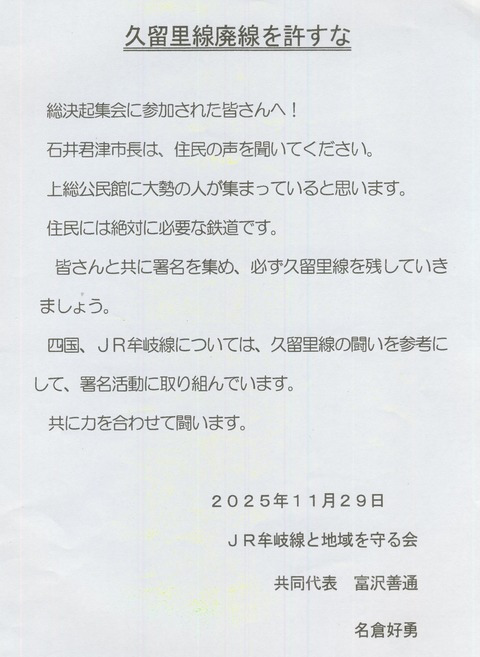 久留里線廃線を許すな
総決起集会に参加された皆さんへ！
石井君津市長は、住民の声を聞いてください。
上総公民館に大勢の人が集まっていると思います。
住民には絶対に必要な鉄道です。
皆さんと共に署名を集め、必ず久留里線を残していき
ましょう。
四国、ＪＲ牟岐線については、久留里線の闘いを参考に
して、署名活動に取り組んでいます。
共に力を合わせて闘います。
２０２５年１１月２９日
ＪＲ牟岐線と地域を守る会
共同代表　富沢善通
名倉好勇